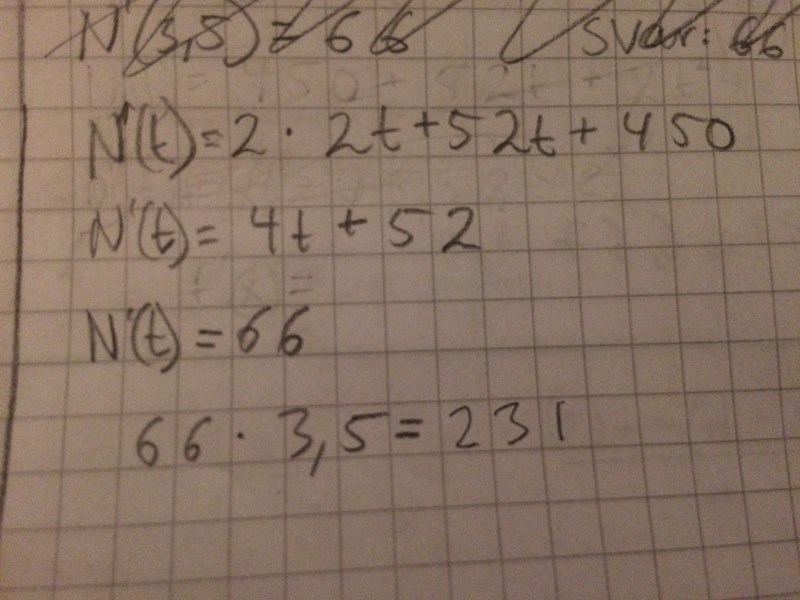 N'(3,5) = 66 Svar: 66
N'(t) = 2 · 2t + 52t + 450
N'(t) = 4t + 52
N'(t) = 66
66 · 3,5 = 231